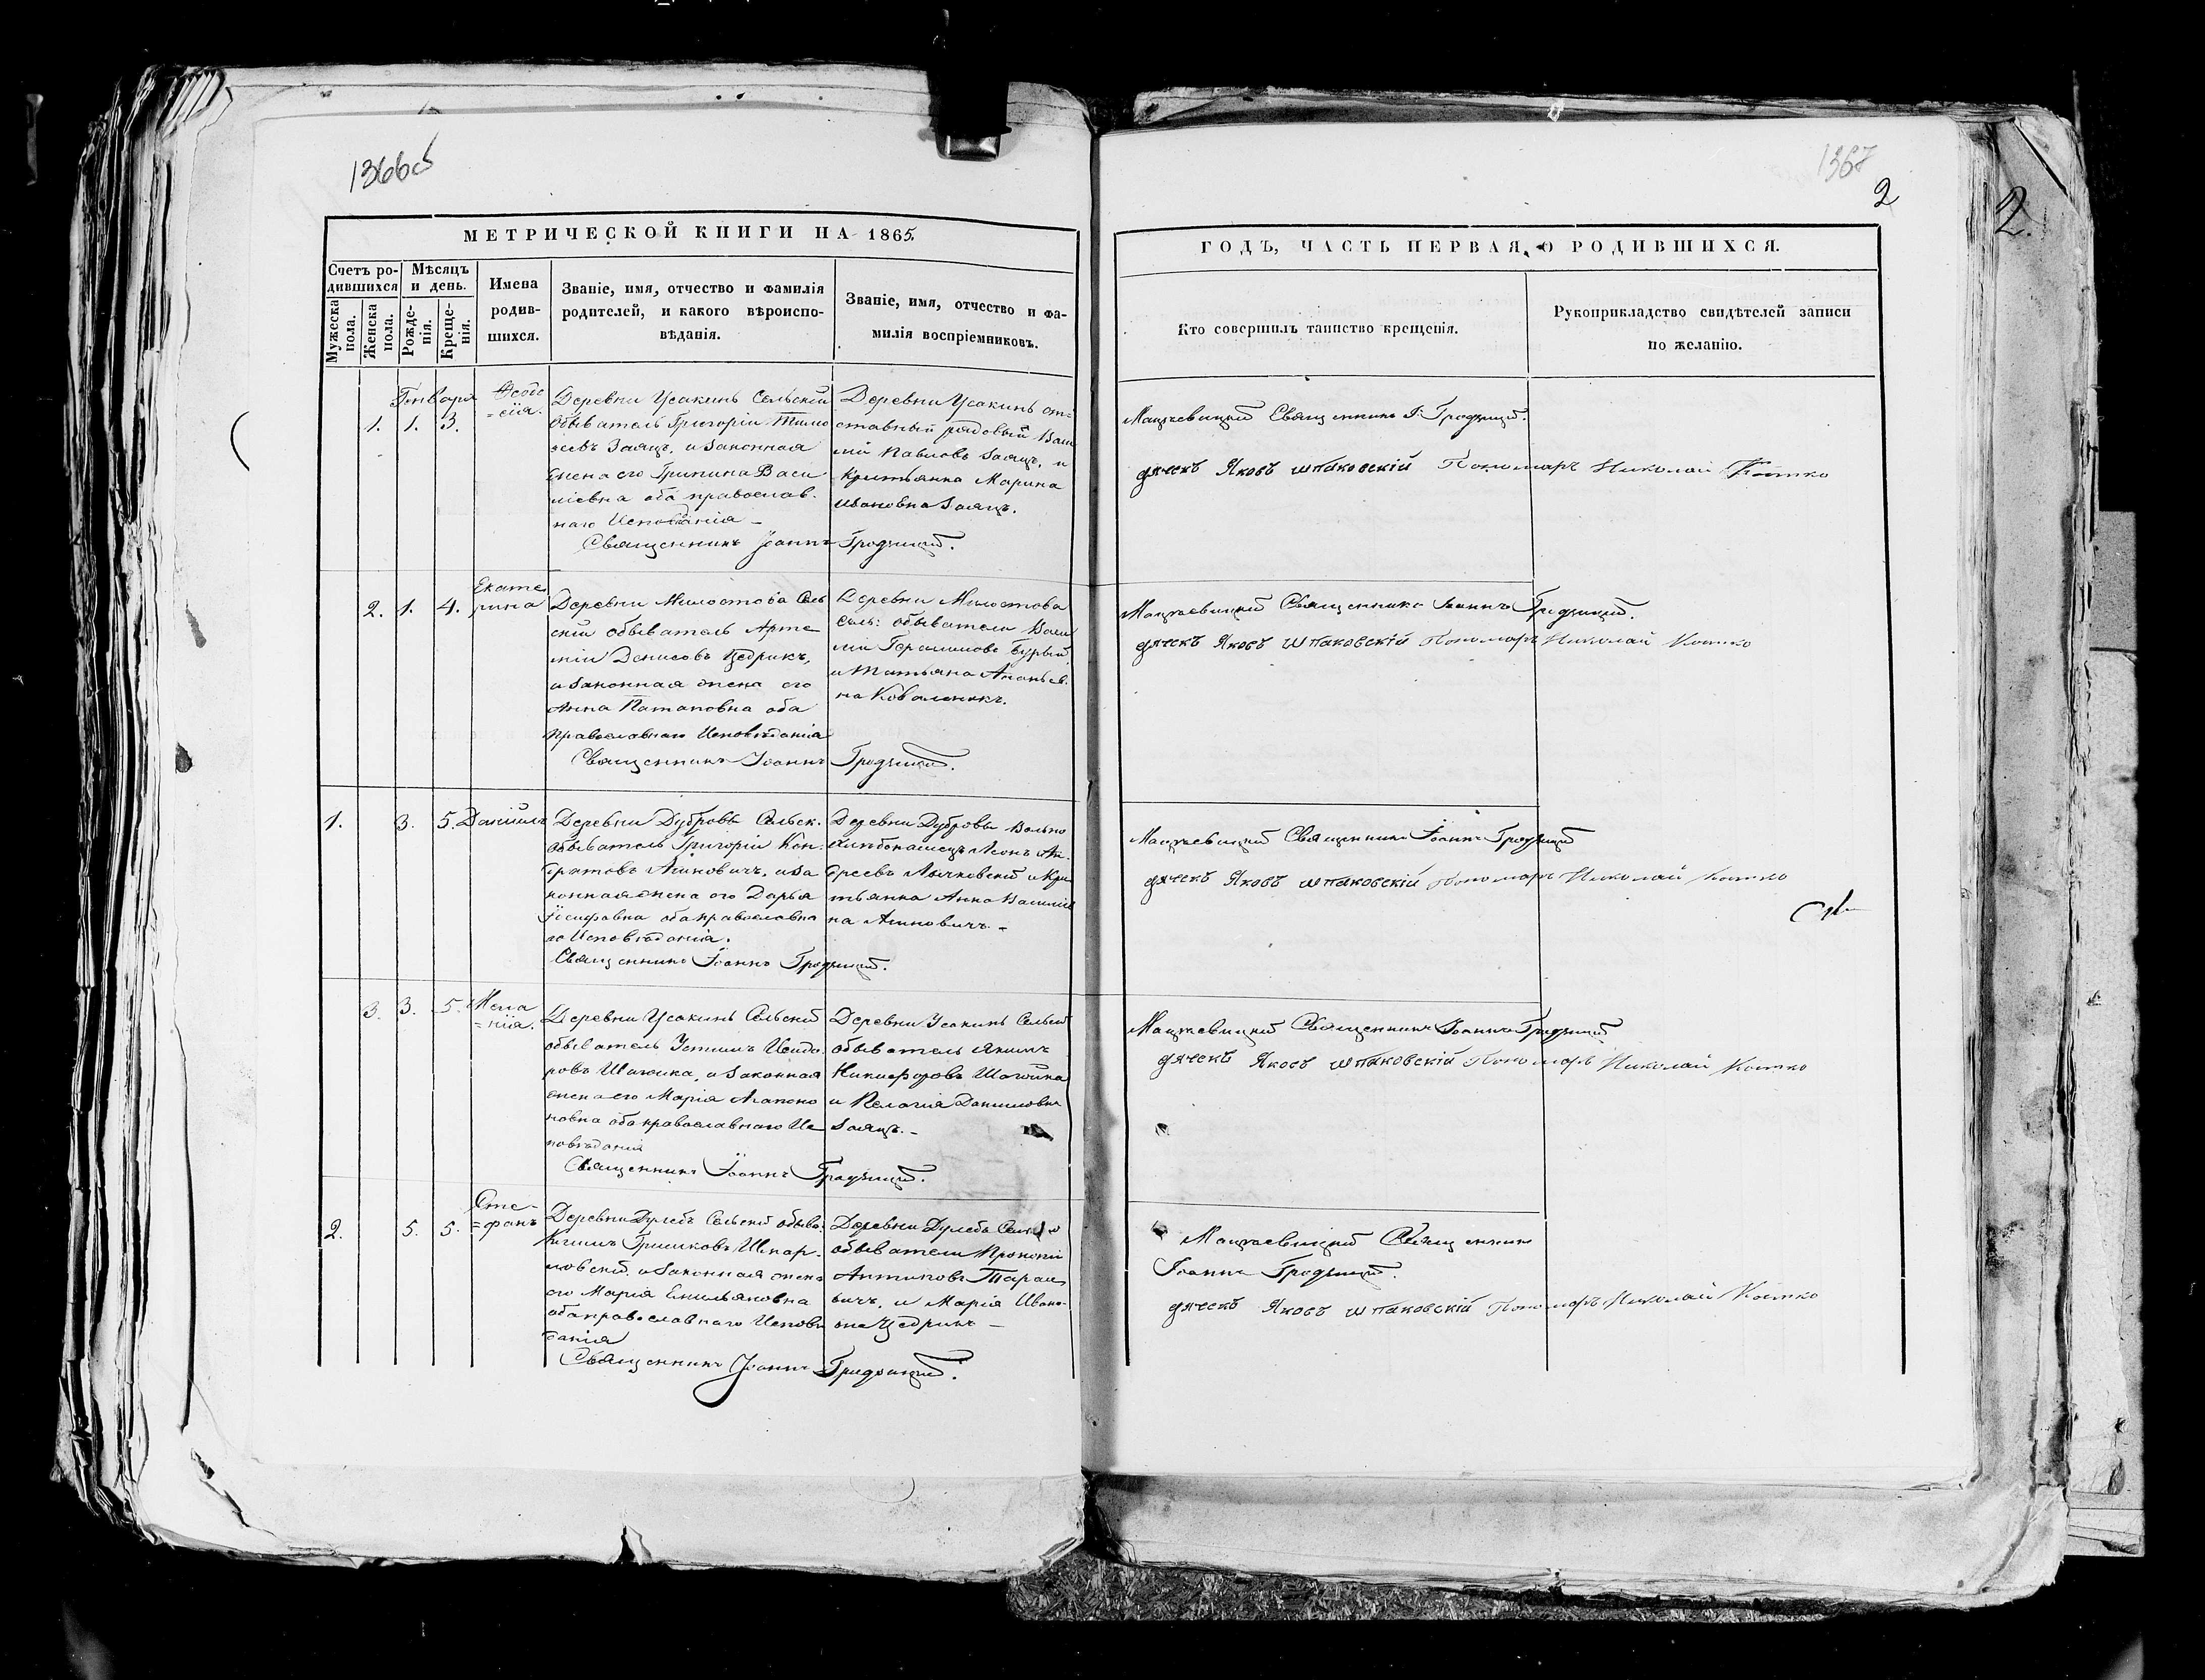 1366об
1367
2
2.
МЕТРИЧЕСКОЙ КНИГИ НА 1865.
Счетъ ро-
дившихся
Мѣсяцъ
и день.
Мужеска
пола.
Женска
пола.
Рожде-
нія.
Креще-
нія.
Имена
родив-
шихся.
Званіе, имя, отчество и фамилія
родителей, и какого вѣроиспо-
вѣданія.
Званіе, имя, отчество и фа-
милія воспріемниковъ.
ГОДЪ, ЧАСТЬ ПЕРВАЯ, О РОДИВШИХСЯ.
Кто совершилъ таинство крещенія.
Рукоприкладство свидѣтелей записи
по желанію.
Генваря
1. 1. 3.
Ѳеодо
=сія.
Деревни Усакинъ Сельскій
обыватель Григорій Тимо
ѳеевъ Заяцъ, и законная
жена его Грипина Васи
ліевна оба православ.
наго Исповѣданія –
Священникъ Іоаннъ Гродзицкій.
Деревни Усакинъ от=
ставный рядовый Васи
лій Павловъ Заяцъ, и
Крестьянка Марина
Ивановна Заяцъ.
Мацевицкій Священникъ І. Гродзицкій.
дячекъ Яковъ Шпаковскій Пономарь Николай Костко
2. 1. 4.
Екате
рина
Деревни Милостова Сель
скій обыватель Арте
мій Денисовъ Цедрикъ,
и законная жена его
Анна Патаповна оба
православнаго Исповѣданія
Священникъ Іоаннъ Гродзицкій.
Деревни Милостова
Сель: обыватели Васи
лій Герасимовъ Бурый,
и Татьяна Ананьев.
на Коваленикъ.
Мацевицкій Священникъ Іоаннъ Гродзицкій.
дячекъ Яковъ Шпаковскій Пономарь Николай Костко
1. 3. 5.
Даніилъ
Деревни Дубровы Сельск.
обыватель Григорій Кон:
дратовъ Агиновичъ, и за
конная жена его Дарья
Іосифовна оба православна
го Исповѣданія.
Священникъ Іоаннъ Гродзицкій.
Деревни Дубровы Вольно
Леонъ Ан.
дреевъ и Кре
стьянка Анна Василіев
на Агиновичъ. –
Мацевицкій Священникъ Іоаннъ Гродзицкій
дячекъ Яковъ Шпаковскій Пономарь Николай Костко
3. 3. 5.
Мела
=нія.
Деревни Усакинъ Сельскій
обыватель Устинъ Исидо.
ровъ и законная
жена его Марія Агапоно
новна оба православнаго Ис
повѣданія
Священникъ Іоаннъ Гродзицкій.
Деревни Усакинъ Сельскій
обыватель Якимъ
Никифоровъ
и Пелагія Даниловна
Заяцъ. –
Мацевицкій Священникъ Іоаннъ Гродзицкій
дячекъ Яковъ Шпаковскій Пономарь Николай Костко
2. 5. 5.
Сте-
=фанъ
Деревни Дулебъ Сельскій обыва:
Гришковъ Шпар.
ловскій и законная жена
его Марія Емильяновна
оба православнаго Исповѣ
данія
Священникъ Іоаннъ Гродзицкій.
Деревни Дулебъ Сельскіе
обыватели Прокопій
Антиповъ Тарасе
вичъ, и Марія Ивано-
вна Цедрикъ –
Мацевицкій Священникъ
Іоаннъ Гродзицкій.
дячекъ Яковъ Шпаковскій Пономарь Николай Костко